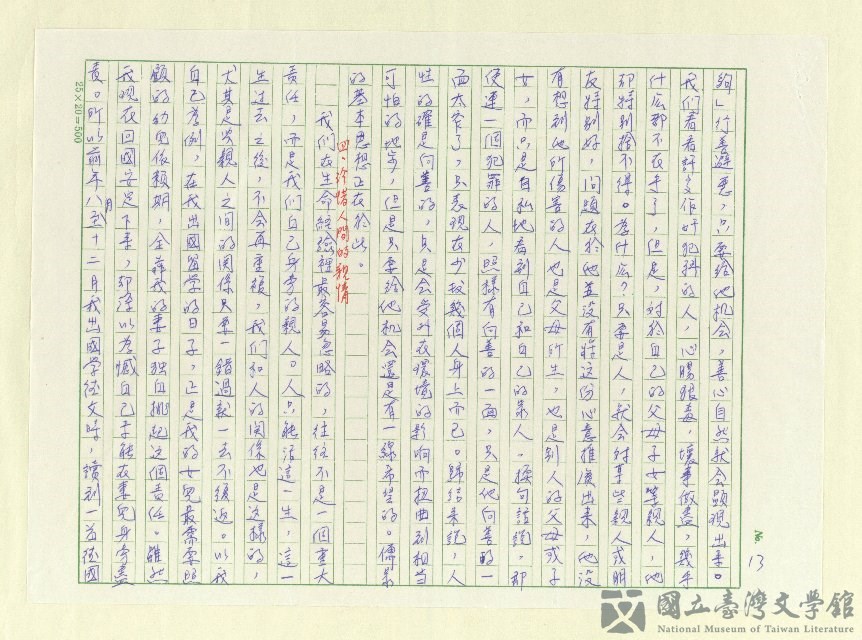 夠」行善避惡,只要給他机会,善心自然就会顯現出來。
我們看看許多作奸犯科的人,心腸狠毒,壞事做盡,幾乎
什么都不在乎了,但是,对於自己的父母子女等親人,他
却特別捨不得。為什么?只要是人,就会对某些親人或朋
友特別好,问題在於他並没有将这份心意推廣出來,他没
有想到他所傷害的人也是父母所生,也是別人的父母或子
女,而只是自私地看到自己和自己的家人。換句話說,那
使連一個犯罪的人,照樣有向善的一面,只是他向善的一
面太窄了,只表現在少数幾個人身上而已。歸結來說,人
性的確是向善的,只是会受外在環境的影响而扭曲到相当
可怕的地步,但是只要給他机会還是有一線希望的。儒家
的基本思想正在於此。
四、珍惜人間的親情
我們在生命經驗裡最容易忽略的,往往不是一個重大
責任,而是我們自己身旁的親人。人只能活這一生,這一
生过去之後,不会再重複,我們和人的関係也是这樣的,
尤其是家親人之间的関係只要一錯過就一去不復返。以我
自己為例,在我出國留学的日子,正是我的女兒最需要照
顧的幼兒依賴期,全靠我的妻子独自挑起这個責任。雖然
我現在回國安定下來,却深以為憾自己未能在妻兒身旁盡
責。所以前年八月至十二月我出國学德文時,讀到一首德國
25×20=500
13
國立臺灣文學館
National Museum of Taiwan Literature